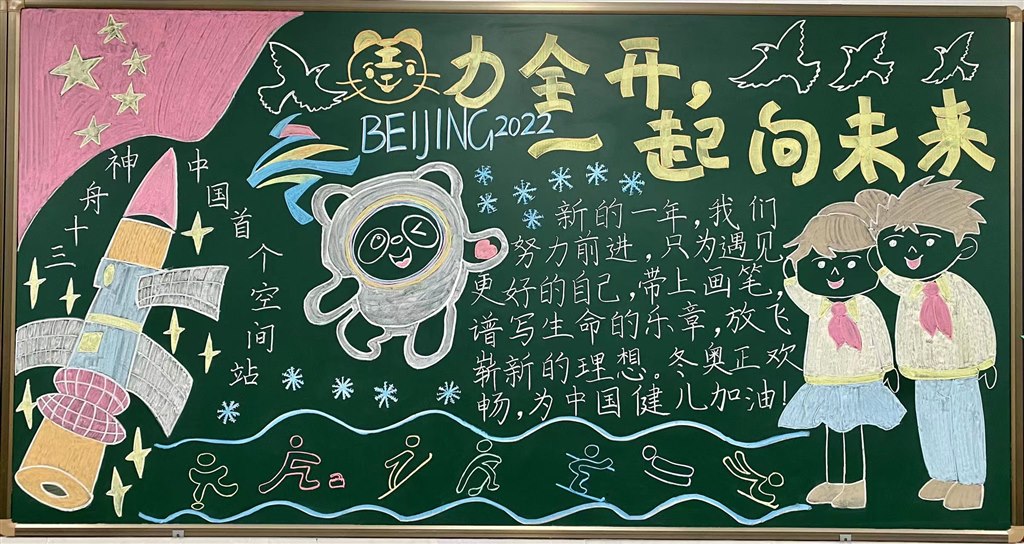 力全开，
一起向未来
BEIJING 2022
神舟十三
中国首个空间站
新的一年，我们
努力前进，只为遇见
更好的自己，带上画笔，
谱写生命的乐章，放飞
崭新的理想。冬奥正欢
畅，为中国健儿加油！